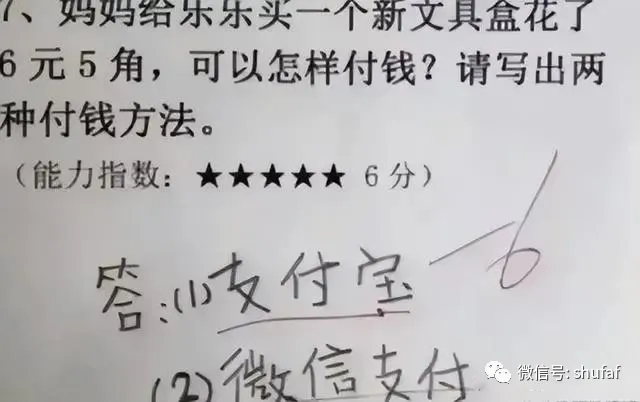 7、妈妈给乐乐买一个新文具盒花了
6元5角，可以怎样付钱？请写出两
种付钱方法。
（能力指数：★★★★★ 6分）
-6
答：(1)支付宝
(2)微信支付
微信号: shufaf